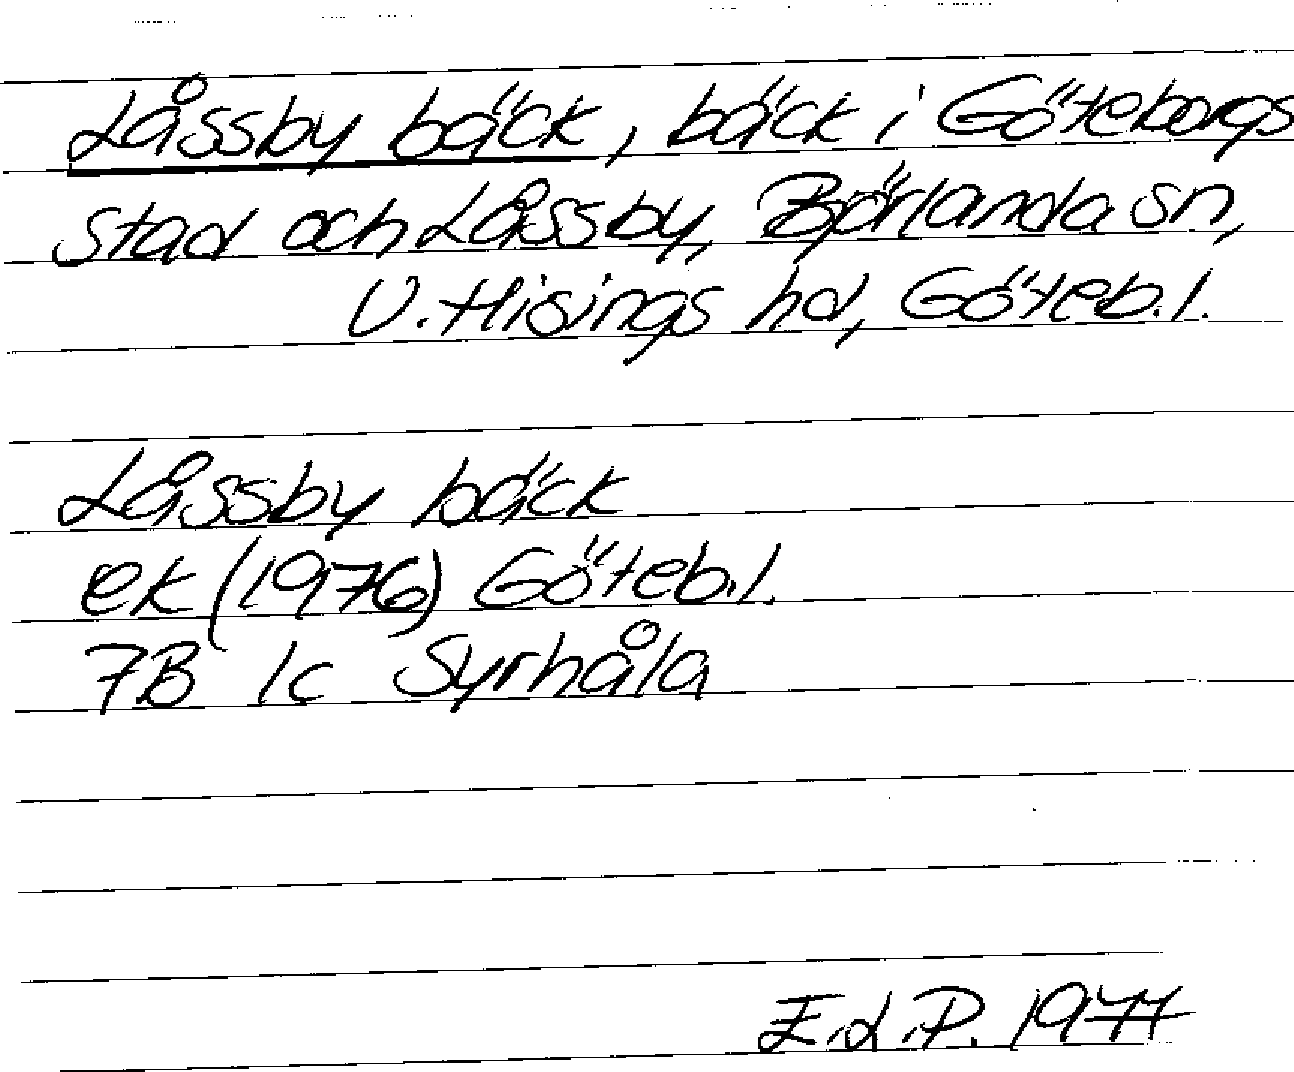 Låssby bäck, bäck i Göteborgs
stad och Låssby, Björlanda sn,
V. Hisings hd, Göteb. l.
Låssby bäck
ek (1976) Göteb. l.
7B 1c Syrhåla
E.L.P. 1977